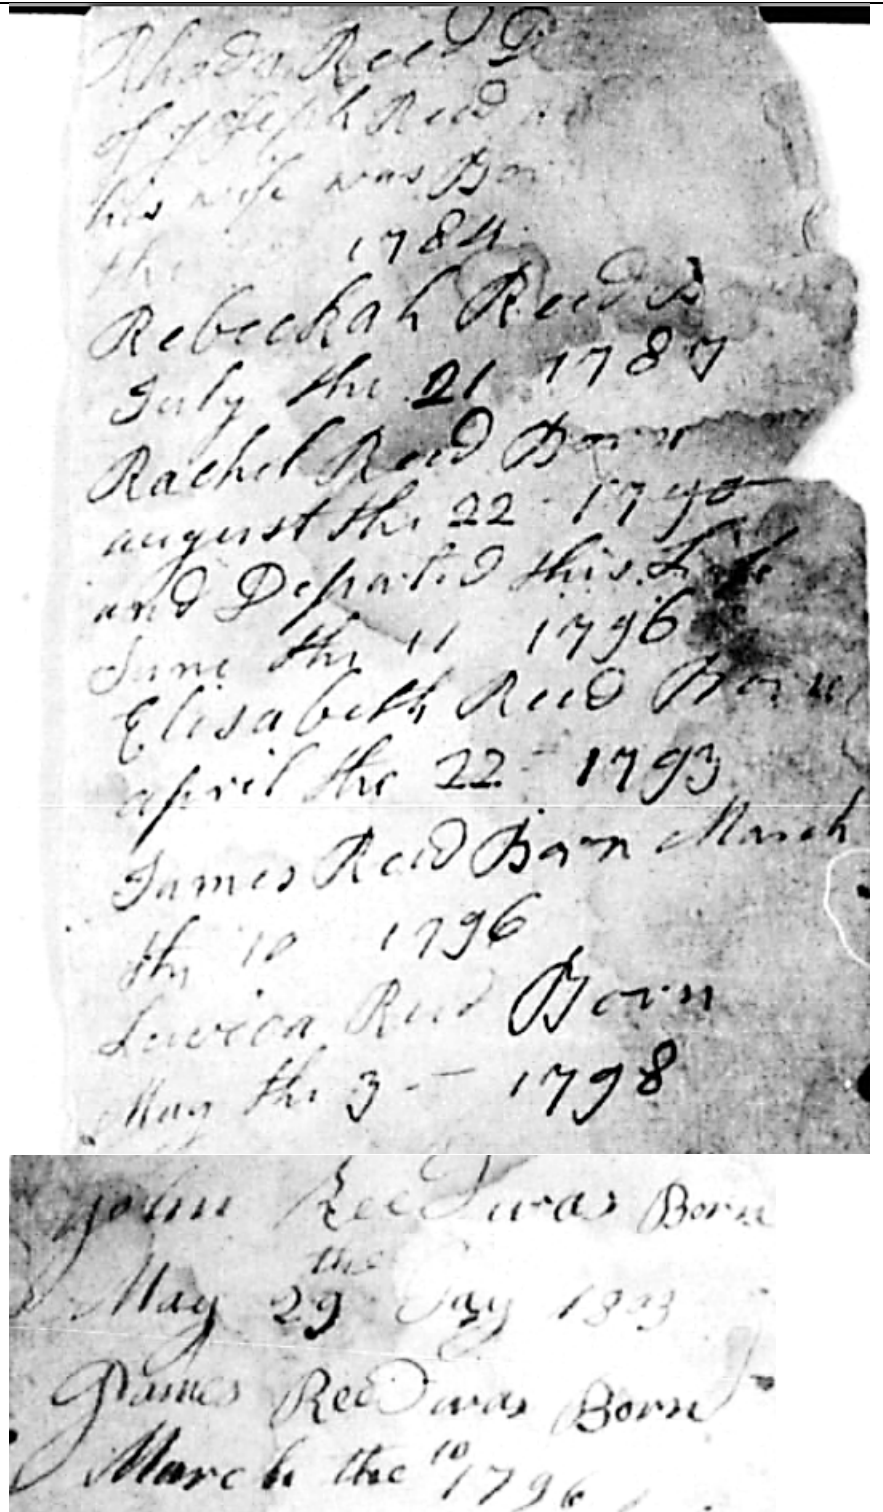 Rhoda Reed D
of Joseph Reed
his wife was Bor
the 1784
Rebeckah Reed B
July the 21 1787
Rachel Reed Born
august the 22 - 1790
and Departed this Life
June the 11 1796
Elisabeth Reed Born
april the 22 - 1793
James Reed Born March
the 10 1796
Lovica Reed Born
May the 3 - - 1798
John Reed was Born
the
May 29 Day 1803
James Reed was Born
March the 10 1796